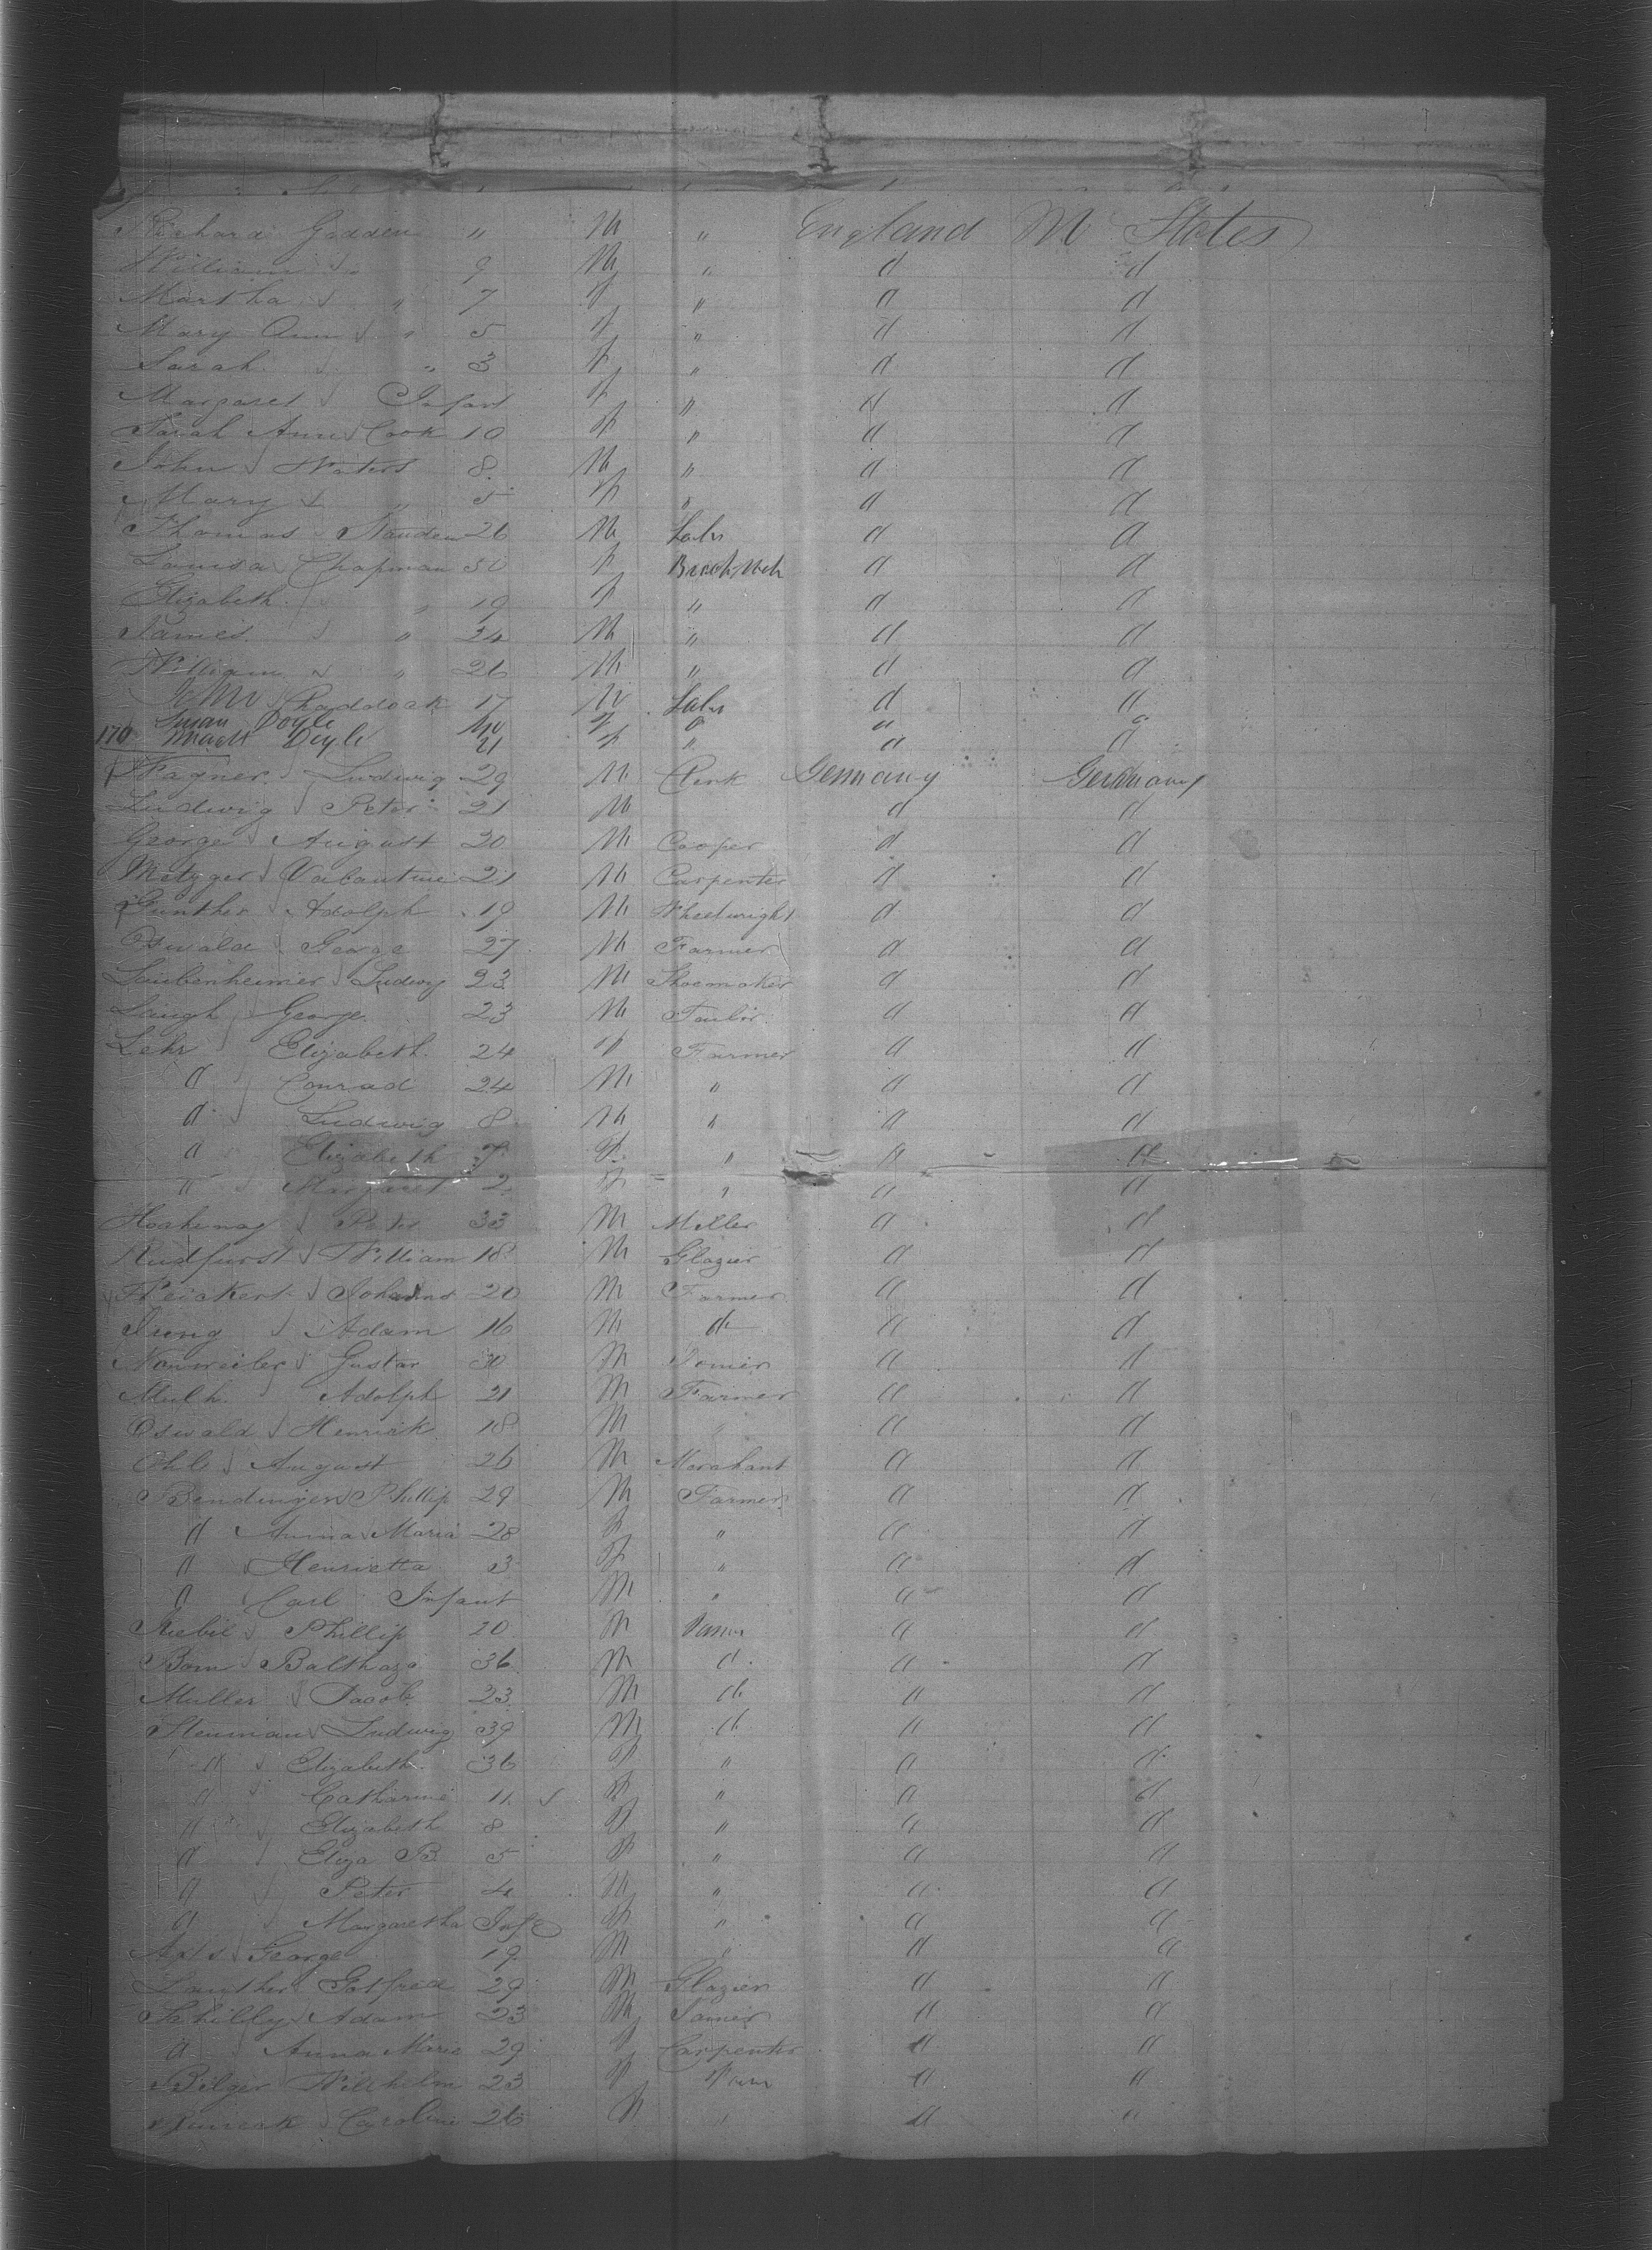 Richard Godden " M " England M States
William " 9 M " d d
Martha " 7 f " d d
Mary Ann " 5 f " d d
Sarah " 3 f " d d
Margaret Infant f " d d
Sarah Ann Cook 10 f " d d
John Waters 8 M " d d
Mary " 5 f " d d
Thomas 26 M Labr d d
Louisa Chapman 50 f d d
Elizabeth " 19 f " d d
James " 24 M " d d
William " 26 M " d d
John 17 M Labr d d
Susan Doyle f " " "
170 Doyle 21 f " d d
Wagner Ludwig 29 M Clerk Germany Germany
Ludwig Peter 21 M d d
George August 20 M Cooper d d
Metzger Valantine 21 M Carpenter d d
Gunther Adolph 19 M Wheelwright d d
Oswald George 27 M Farmer d d
Laubenheimer Ludwig 23 M Shoemaker d d
Laugh George 23 M Tailor d d
Lehr Elizabeth 24 f Farmer d d
d Conrad 24 M " d d
d Ludwig 8 M " d d
d Elizabeth 7 f " d d
" Margaret 2 f " d d
Peter 33 M Miller d d
Rudfurst William 18 M Glazier d d
Weickert Johannes 20 M Farmer d d
Jung Adam 16 M do d d
Neuweiler Gustav 30 M Joiner d d
Muth Adolph 21 M Farmer d d
Oswald Henrick 18 M " d d
Ohl August 26 M Merchant d d
Bendinger Phillip 29 M Farmer d d
d Anna Maria 28 f " d d
d Henrietta 3 f " d d
d Carl Infant M " d d
Phillip 20 M Farmr d d
Born Balthazo 36 M d d d
Muller Jacob 23 M do d d
Steuman Ludwig 39 M do d d
d Elizabeth 36 f " d d
d Catharine 11 f " d d
d Elizabeth 8 f " d d
d Eliza B. 5 f " d d
d Peter 4 M " d d
d Margaretha Inft f " d d
George 19 M " d d
Gotfried 29 M Glazier d d
Schilly Adam 23 M Joiner d d
d Anna Marie 29 f Carpenter d d
Bilger Wilhelm 23 f Farm d d
Caroline 26 " d "